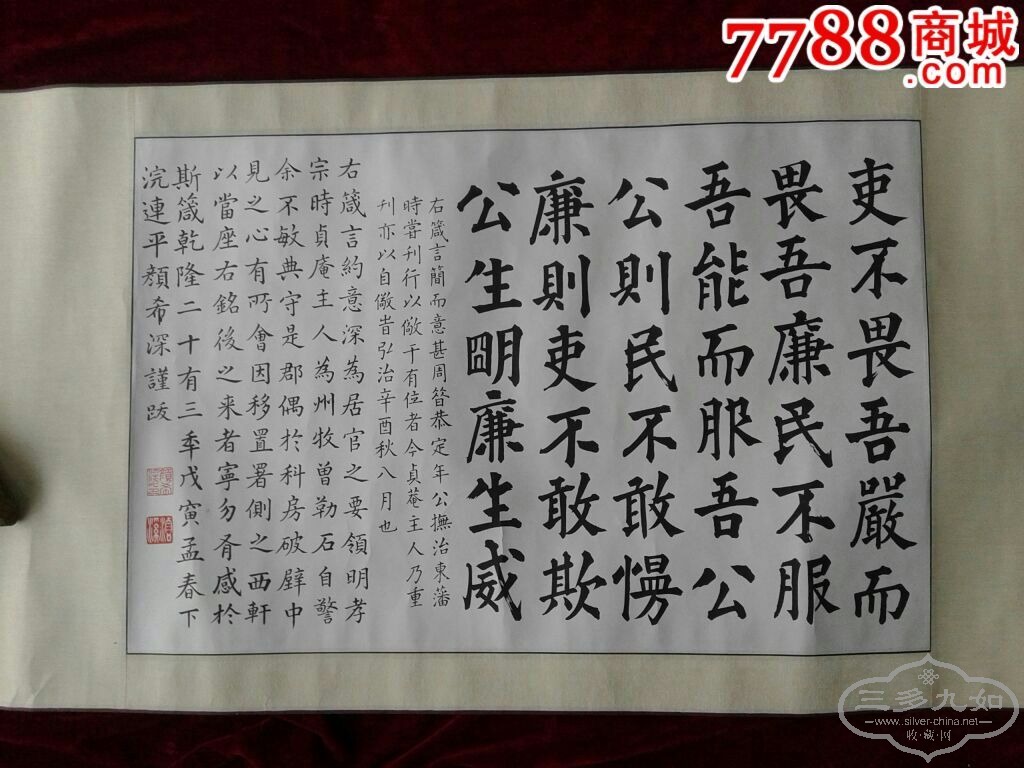 7788商城
.com
吏不畏吾嚴而
畏吾廉民不服
吾能而服吾公
公則民不敢慢
廉則吏不敢欺
公生朙廉生威
右箴言簡而意甚周昝恭定年公撫治東藩
時嘗刊行以儆干有位者今貞菴主人乃重
刊亦以自儆旹弘治辛酉秋八月也
右箴言約意深為居官之要領明孝
宗時貞庵主人為州牧曾勒石自警
余不敏典守是郡偶於科房破壁中
見之心有所會因移置署側之西軒
以當座右銘後之来者寧勿有感於
斯箴乾隆二十有三年戊寅孟春下
浣連平顏希深謹跋
三多九如
www.silver-china.net
收藏网